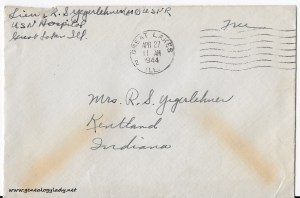 Lieut R. S. Yegerlehner MC USNR
USN Hospital
Great Lakes Ill.
GREAT LAKES
APR 27
11 AM
1944
ILL.
Free
Mrs. R. S. Yegerlehner
Kentland
Indiana
www.genealogylady.net